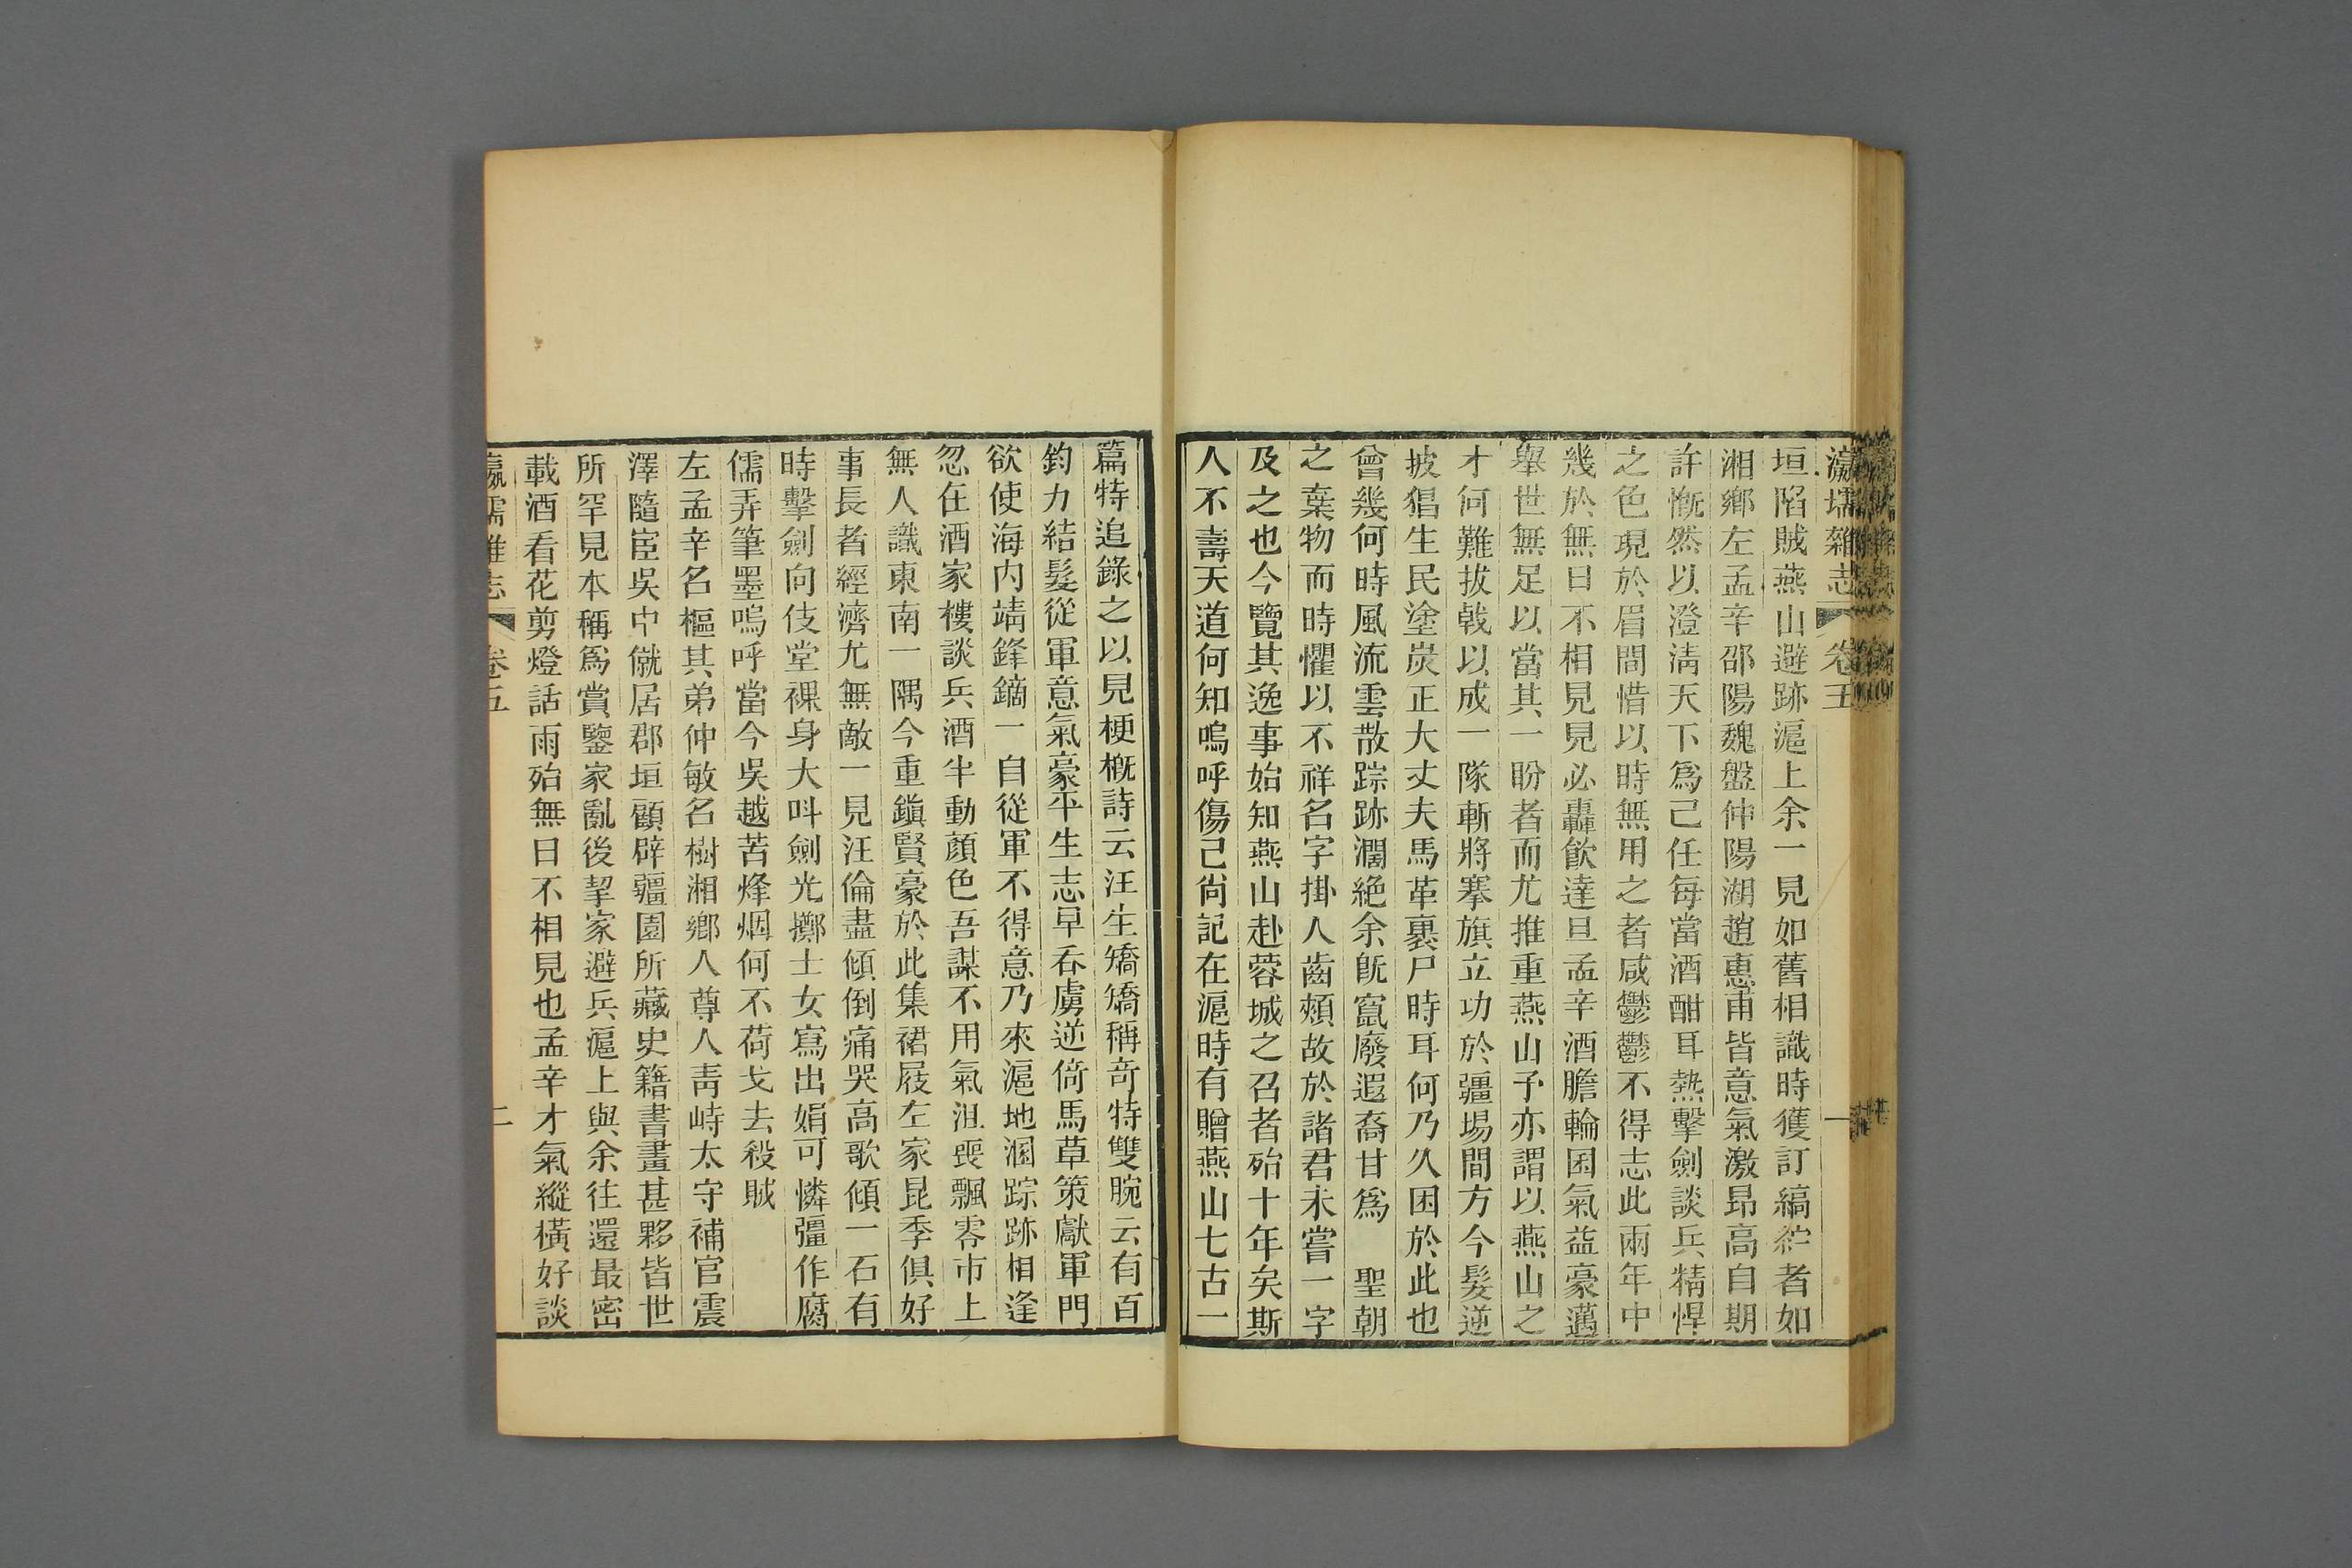 瀛壖雜志 卷五 一
垣陷賊燕山避跡滬上余一見如舊相識時獲訂縞紵者如
湘鄉左孟辛邵陽魏盤仲陽湖趙惠甫皆意氣激昂高自期
許慨然以澄淸天下爲己任每當酒酣耳熱擊劍談兵精悍
之色現於眉間惜以時無用之者咸鬱鬱不得志此兩年中
幾於無日不相見見必轟飮達旦孟辛酒膽輪囷氣益豪邁
舉世無足以當其一盼者而尤推重燕山予亦謂以燕山之
才何難拔戟以成一隊斬將搴旗立功於疆埸間方今髮逆
披猖生民塗炭正大丈夫馬革裹尸時耳何乃久困於此也
曾幾何時風流雲散踪跡濶絶余旣竄廢遐裔甘爲　聖朝
之棄物而時懼以不祥名字掛人齒頰故於諸君未嘗一字
及之也今覽其逸事始知燕山赴蓉城之召者殆十年矣斯
人不壽天道何知嗚呼傷已尙記在滬時有贈燕山七古一
篇特追錄之以見梗槪詩云汪生矯矯稱奇特雙腕云有百
鈞力結髮從軍意氣豪平生志早吞虜逆倚馬草策獻軍門
欲使海内靖鋒鏑一自從軍不得意乃來滬地溷踪跡相逢
忽在酒家樓談兵酒半動顏色吾謀不用氣沮喪飄零市上
無人識東南一隅今重鎭賢豪於此集裙屐左家昆季俱好
事長者經濟尤無敵一見汪倫盡傾倒痛哭高歌傾一石有
時擊劍向伎堂裸身大呌劍光擲士女寫出娟可憐彊作腐
儒弄筆墨嗚呼當今吳越苦烽烟何不荷戈去殺賊
左孟辛名樞其弟仲敏名樹湘鄉人尊人靑峙太守補官震
澤隨宦吳中僦居郡垣顧辟疆園所藏史籍書畫甚夥皆世
所罕見本稱爲賞鑒家亂後挈家避兵滬上與余往還最密
載酒看花剪燈話雨殆無日不相見也孟辛才氣縱橫好談
瀛壖雜志 卷五 二